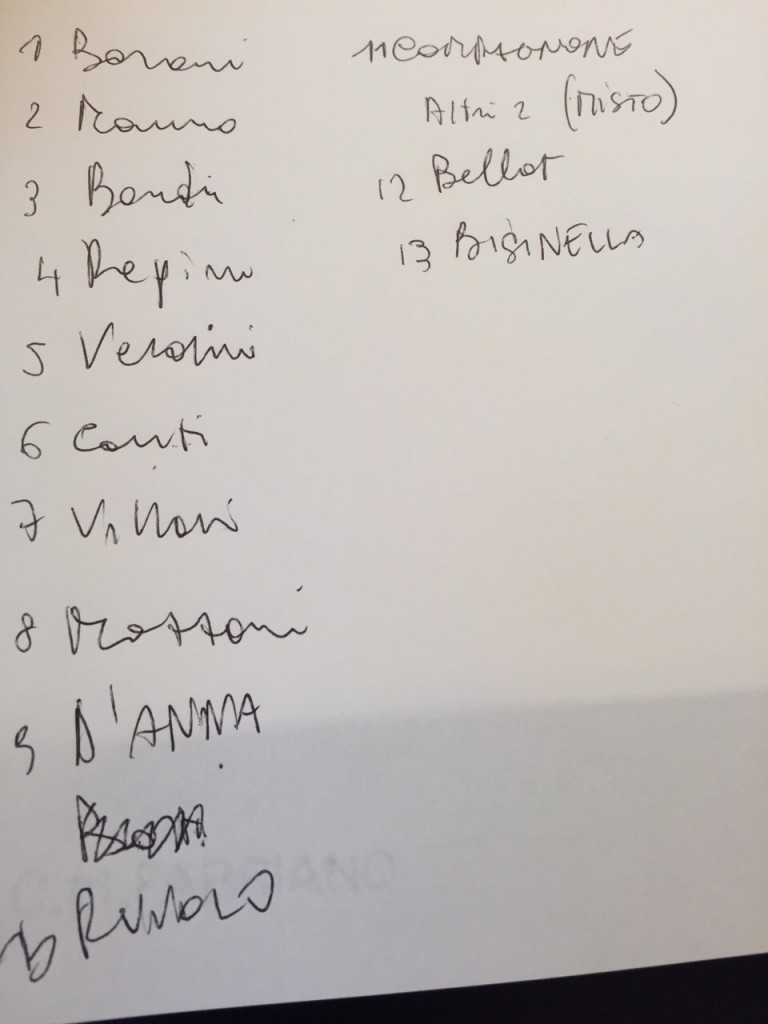 1 Barani
2 Mauro
3 Bondi
4 Repim
5 Verdini
6 Conti
7 Villari
8 Mazzoni
9 D'ANNA
10 RUVOLO
11 COMPAGNONE
Altri 2 (MISTO)
12 Bellot
13 BISINELLA